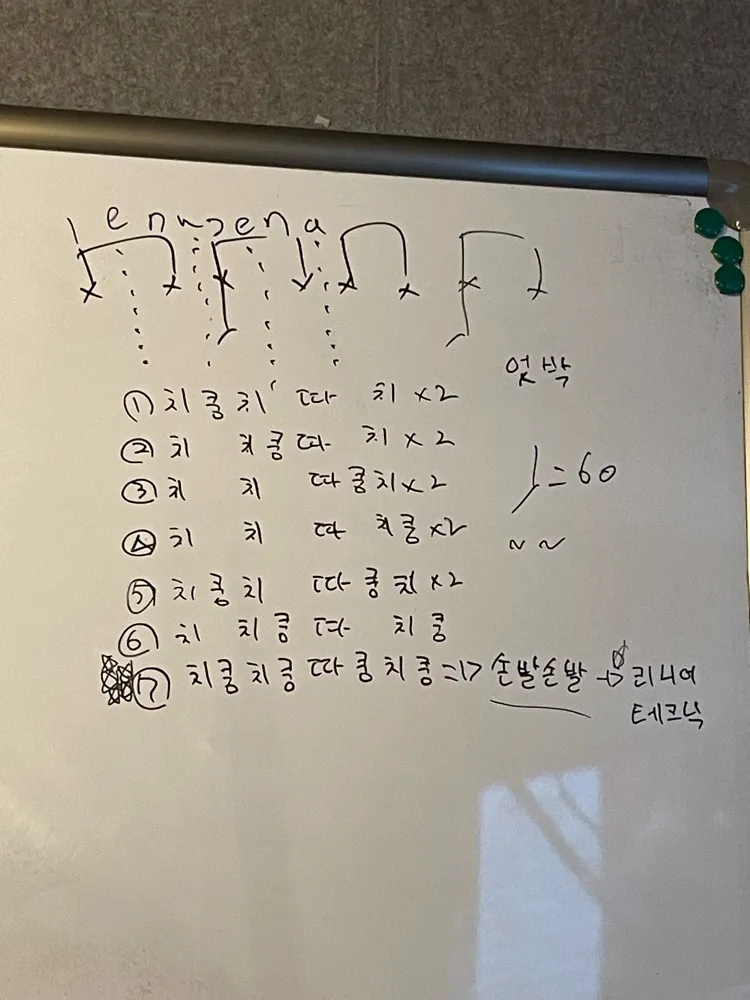 1 e n n 2 e n a
엇박
① 치쿵치 따 치 x2
② 치 치쿵따 치 x 2
③ 치 치 따쿵치 x2
= 60
④ 치 치 따 치쿵 x2
~ ~
⑤ 치쿵치 따쿵치 x2
⑥ 치 치쿵 따 치쿵
⑦ 치쿵치쿵따쿵치쿵 => 손발손발 -> 리니어
테크닉